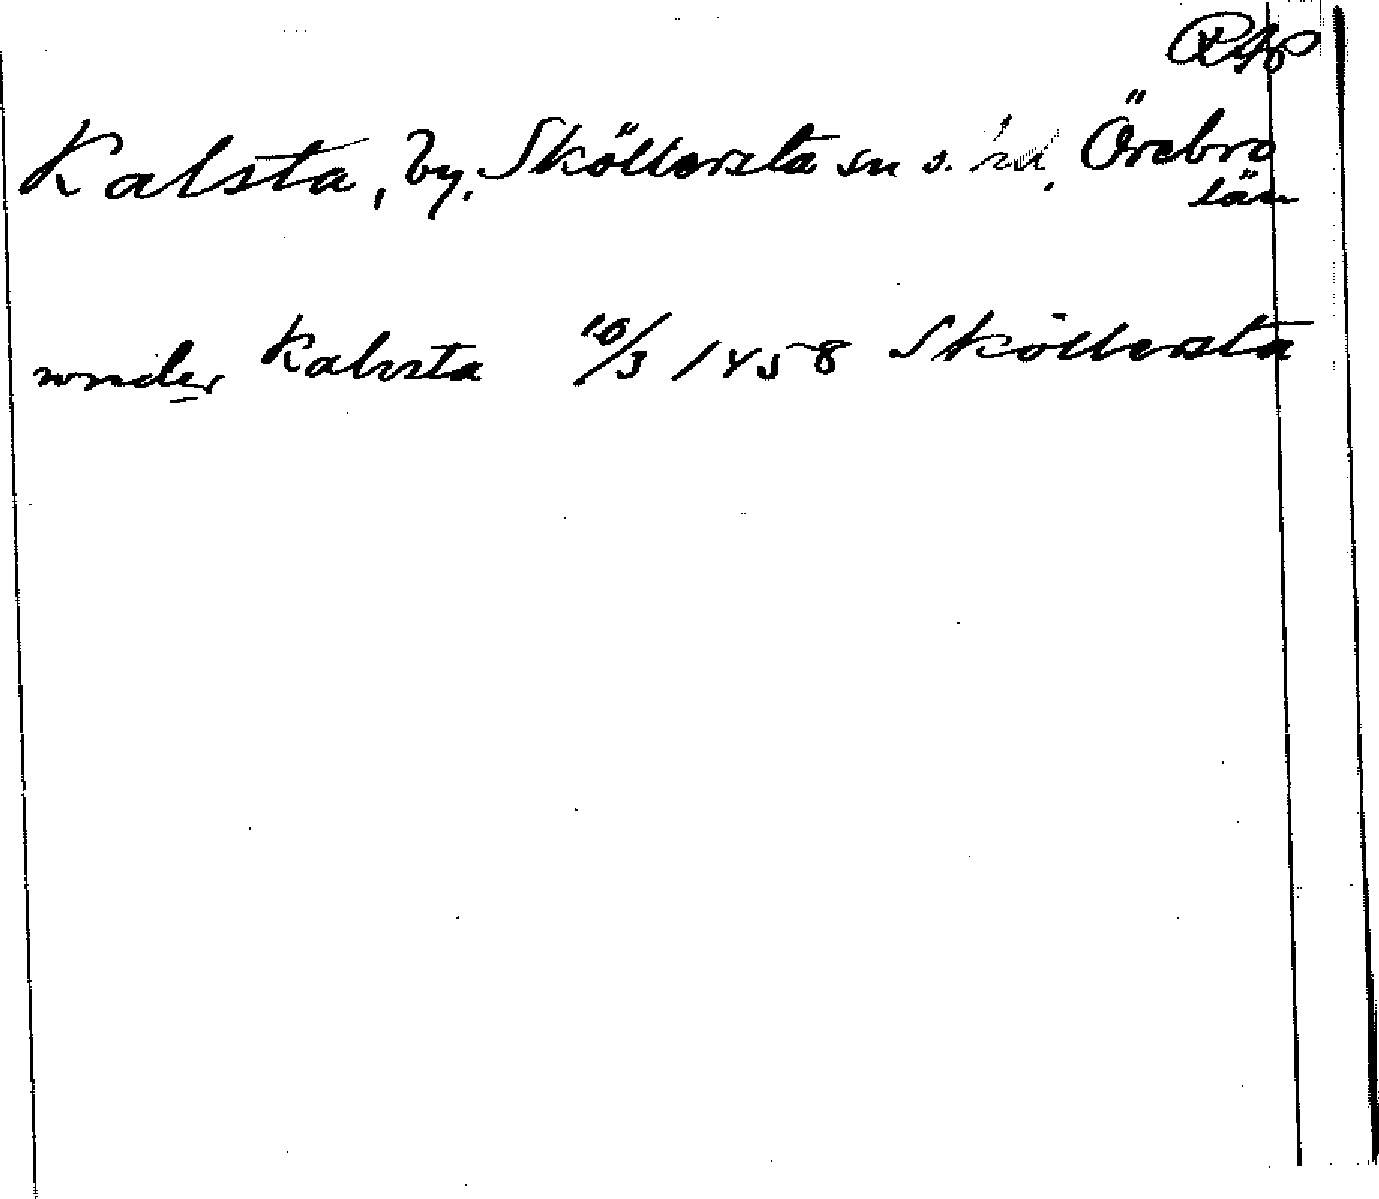 Kalsta, by, Sköllersta sn o. hd, Örebro
län
under Kalssta 10/3 1458 Sköllersta